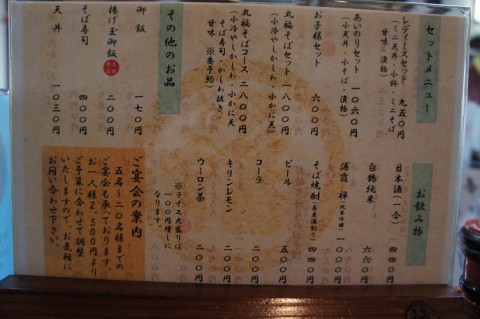 セットメニュー
レディースセット 九五〇円
(ミニ天丼・小鉢・ミニそば
甘味・漬物)
あいのりセット 一〇六〇円
(小天丼・小そば・漬物)
お子様セット 六〇〇円
丸福そばセット 一八〇〇円
(小冷やしかしわ・小かに天)
丸福そばコース 二八〇〇円
(小冷やしかしわ・小かに天
そば寿司・かしわ抜き・
甘味 ※要予約)
その他のお品
御飯 一七〇円
揚げ玉御飯 二〇〇円
そば寿司 四〇〇円
天丼 一〇三〇円
お飲み物
日本酒(一合) 四四〇円
白鶴純米 六六〇円
浦霞 禅(純米吟醸) 一〇〇〇円
そば焼酎(蕎麦湯割り) 四四〇円
ビール 五〇〇円
コーラ 二〇〇円
キリンレモン 二〇〇円
ウーロン茶 二〇〇円
※ライス大盛りは
一〇〇円増しに
なります。
ご宴会の案内
五名〜二〇名様までの
ご宴会も承っております。
お一人様2,500円より
ご予算に合わせて調整
いたしますので、お気軽に
お問い合わせ下さい。